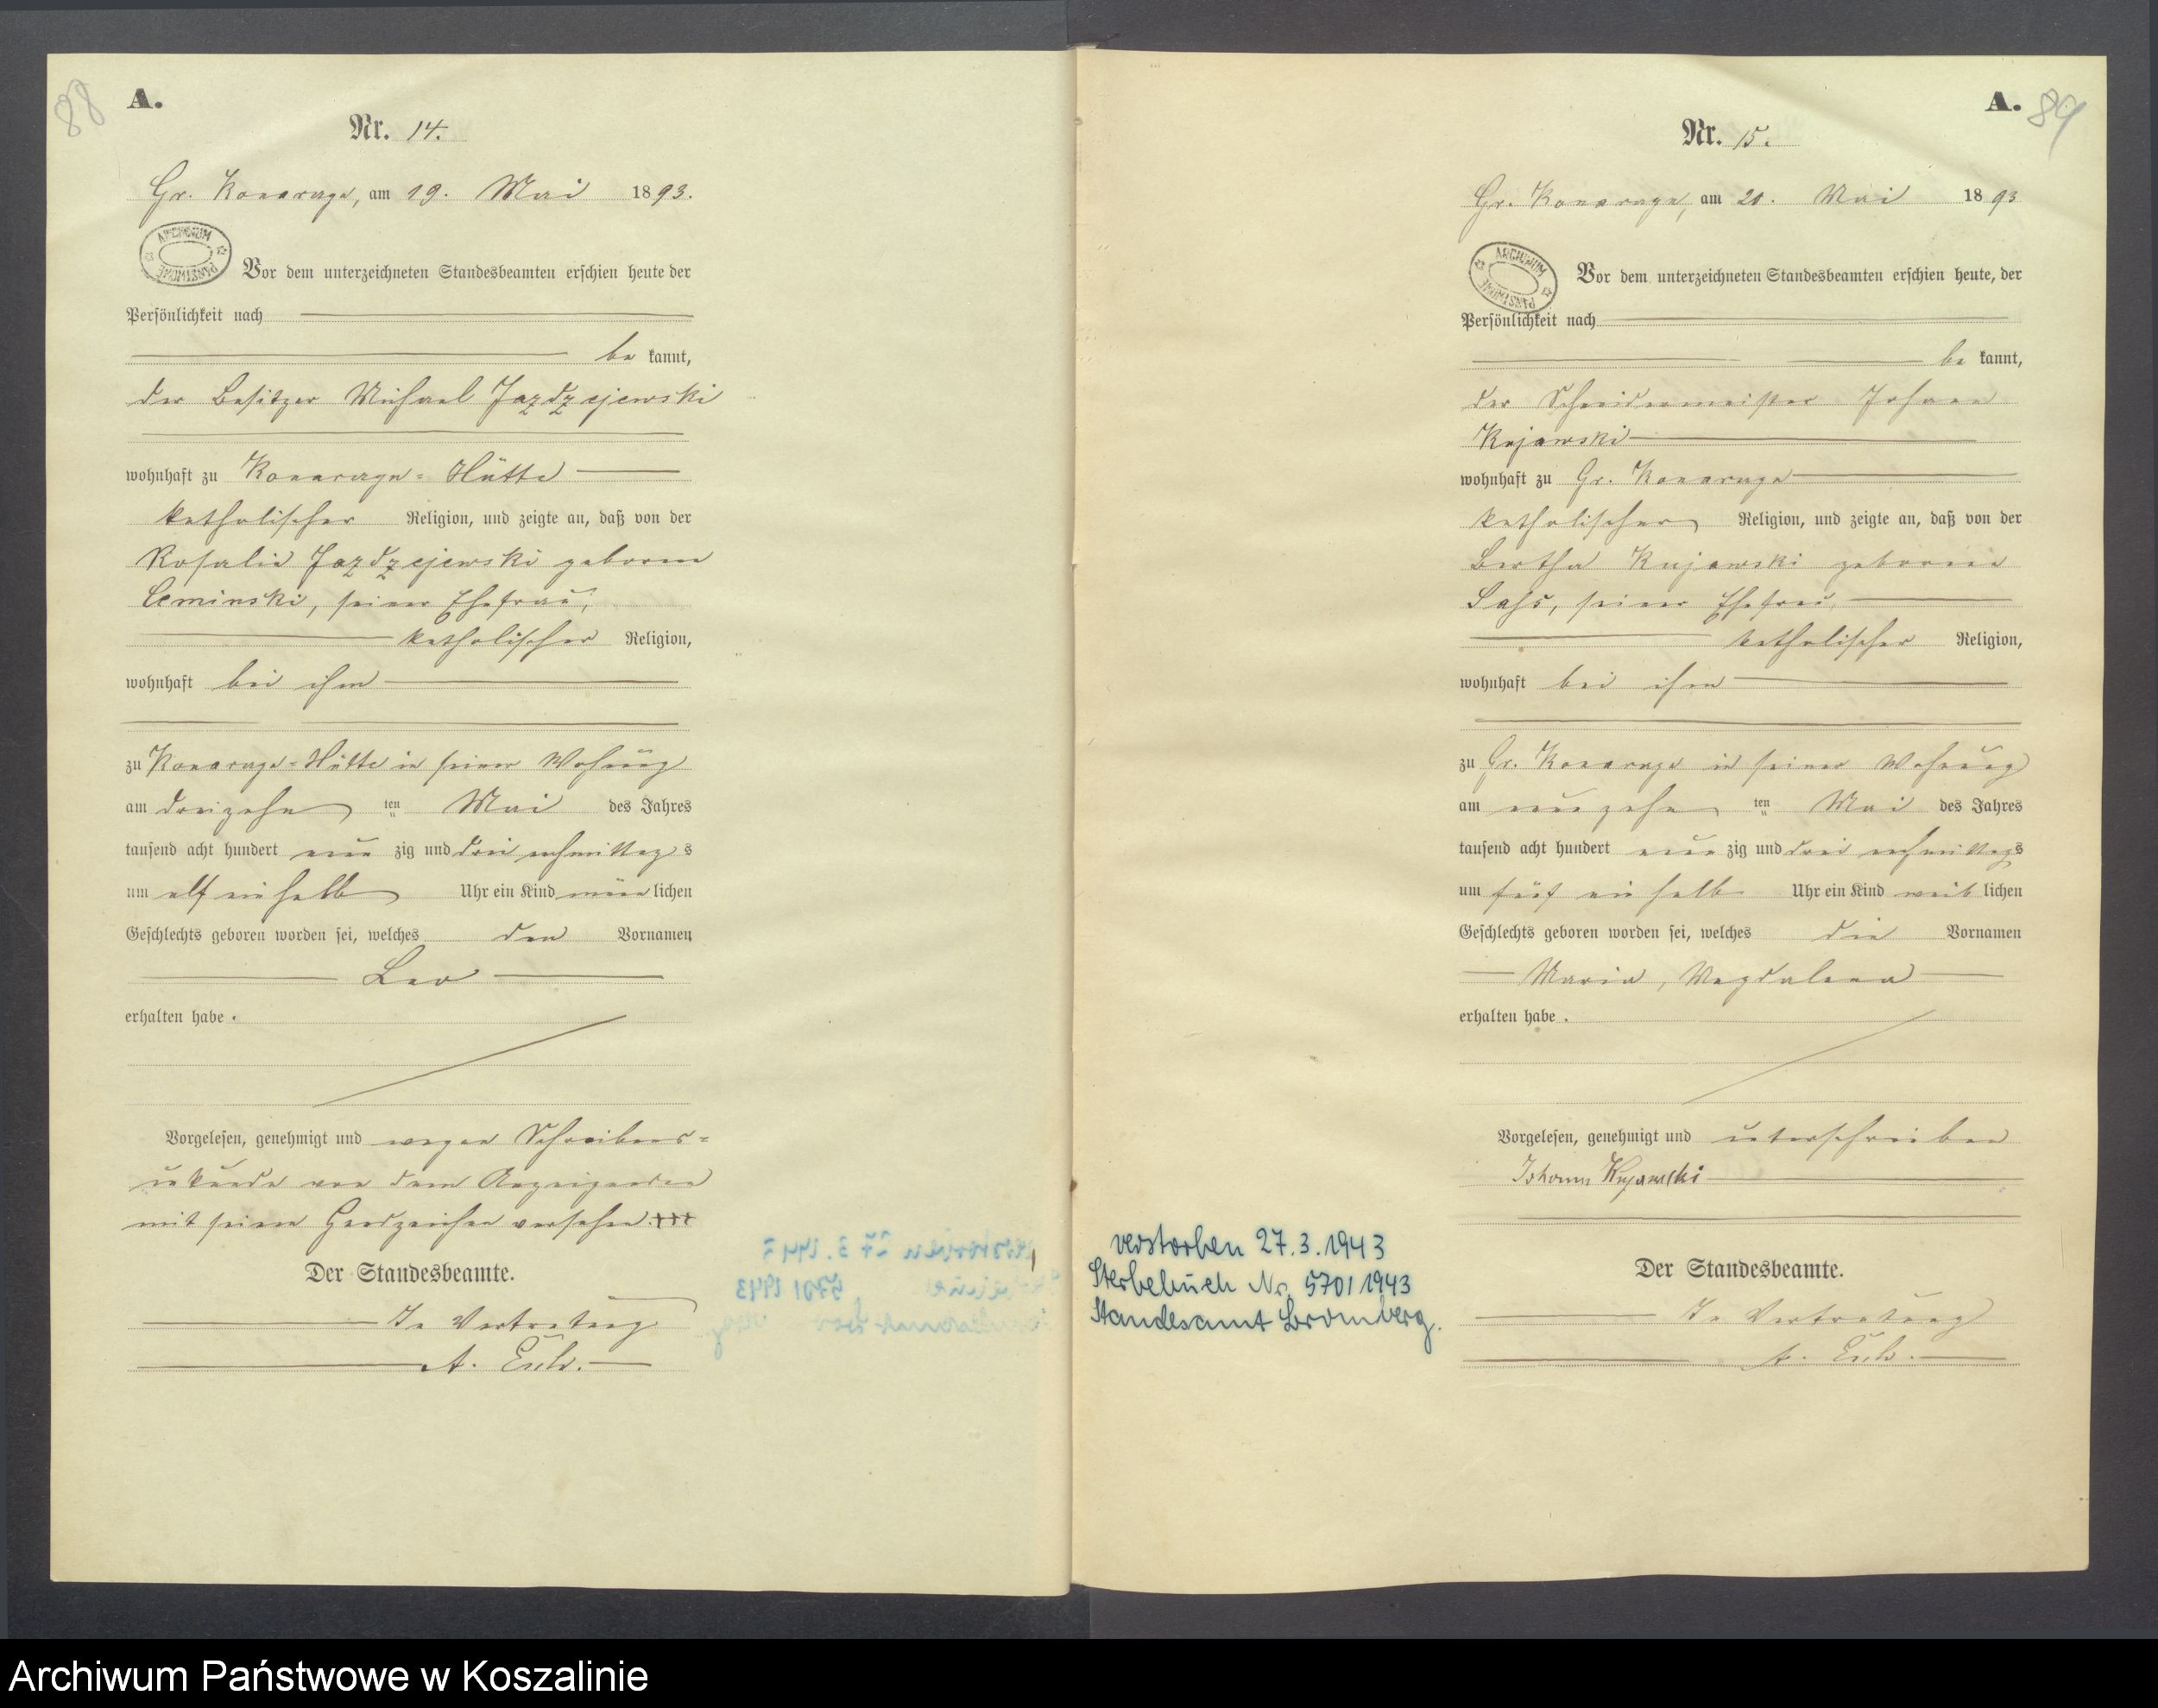 88
A.
Nr. 14.
Gr. Konarzyn, am 19. Mai 1893.
ARCHIWUM PAŃSTWOWE
Vor dem unterzeichneten Standesbeamten erschien heute der
Persönlichkeit nach
be kannt,
der Besitzer Michael Jazdzejewski
wohnhaft zu Konarzyn-Hütte
katholischer Religion, und zeigte an, daß von der
Rosalie Jazdzejewski geborene
Ceminski, seiner Ehefrau,
katholischer Religion,
wohnhaft bei ihm
zu Konarzyn-Hütte in seiner Wohnung
am dreizehn ten Mai des Jahres
tausend acht hundert neun zig und drei nachmittags
um elf ein halb Uhr ein Kind männlichen
Geschlechts geboren worden sei, welches den Vornamen
Leo
erhalten habe.
Vorgelesen, genehmigt und wegen Schreibens-
unkunde von dem Anzeigenden
mit seinem Handzeichen versehen. +++
Der Standesbeamte.
In Vertretung
A.
A. 89
Nr. 15.
Gr. Konarzyn, am 20. Mai 1893
ARCHIWUM PAŃSTWOWE
Vor dem unterzeichneten Standesbeamten erschien heute, der
Persönlichkeit nach
be kannt,
der Schneidermeister Johann
Kujawski
wohnhaft zu Gr. Konarzyn
katholischer Religion, und zeigte an, daß von der
Bertha Kujawski geborene
seiner Ehefrau,
katholischer Religion,
wohnhaft bei ihm
zu Gr. Konarzyn in seiner Wohnung
am neunzehn ten Mai des Jahres
tausend acht hundert neun zig und drei nachmittags
um fünf ein halb Uhr ein Kind weib lichen
Geschlechts geboren worden sei, welches die Vornamen
Maria, Magdalena
erhalten habe.
Vorgelesen, genehmigt und unterschrieben
Johann Kujawski
Der Standesbeamte.
In Vertretung
A.
verstorben 27.3.1943
Sterbebuch Nr. 570/1943
Standesamt Bromberg.
Archiwum Państwowe w Koszalinie